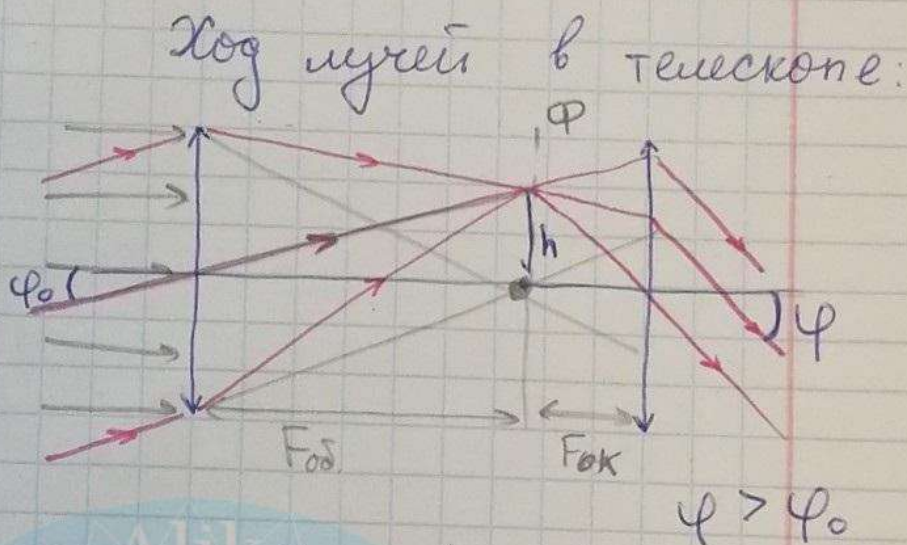 Ход лучей в телескопе:
Ф
h
φ₀
φ
Fоб.
Fок
φ > φ₀
Alik